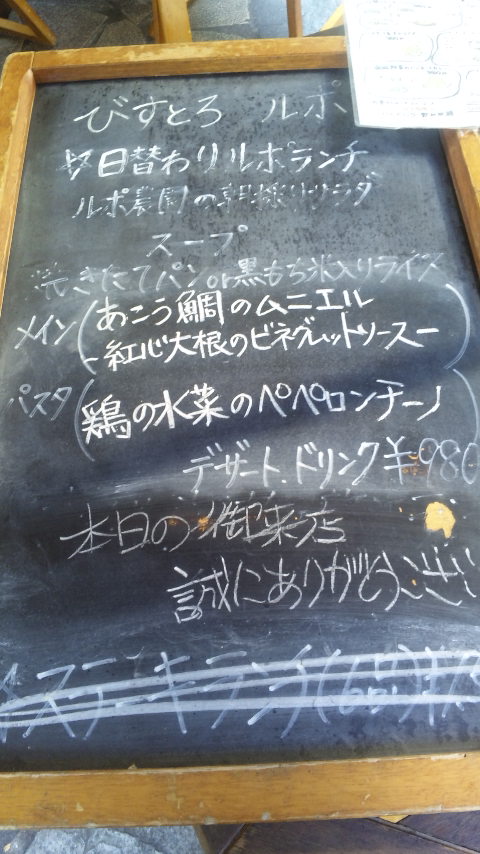 びすとろ ルポ
日替わりルポランチ
ルポ農園の朝採りサラダ
スープ
焼きたてパンor黒もち米入りライス
メイン(あこう鯛のムニエル
-紅心大根のビネグレットソースー)
パスタ(鶏の水菜のペペロンチーノ)
デザート.ドリンク ¥980
本日の御来店
誠にありがとうござい
☆ステーキランチ(